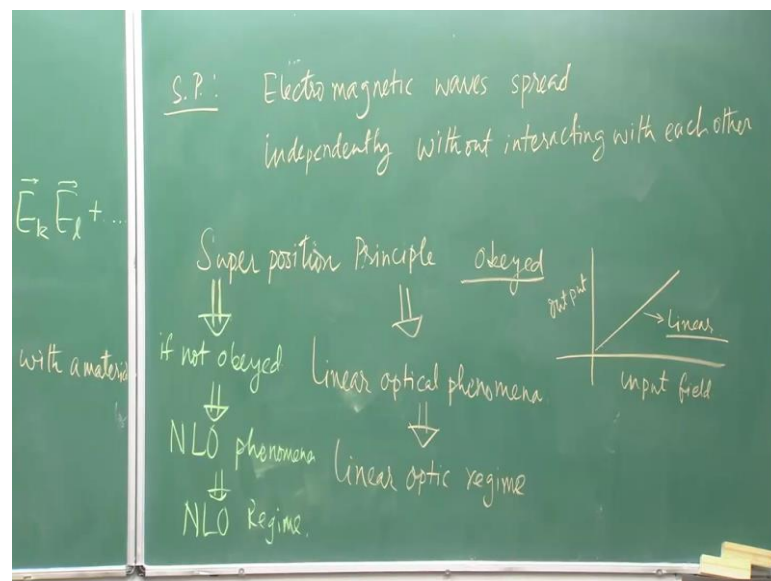 S.P.: Electromagnetic waves spread
independently without interacting with each other
E⃗k E⃗l + ...
with a materia
Super position Principle obeyed
if not obeyed
NLO phenomena
NLO Regime.
Linear optical phenomena
linear optic regime
output
→ Linear
input field